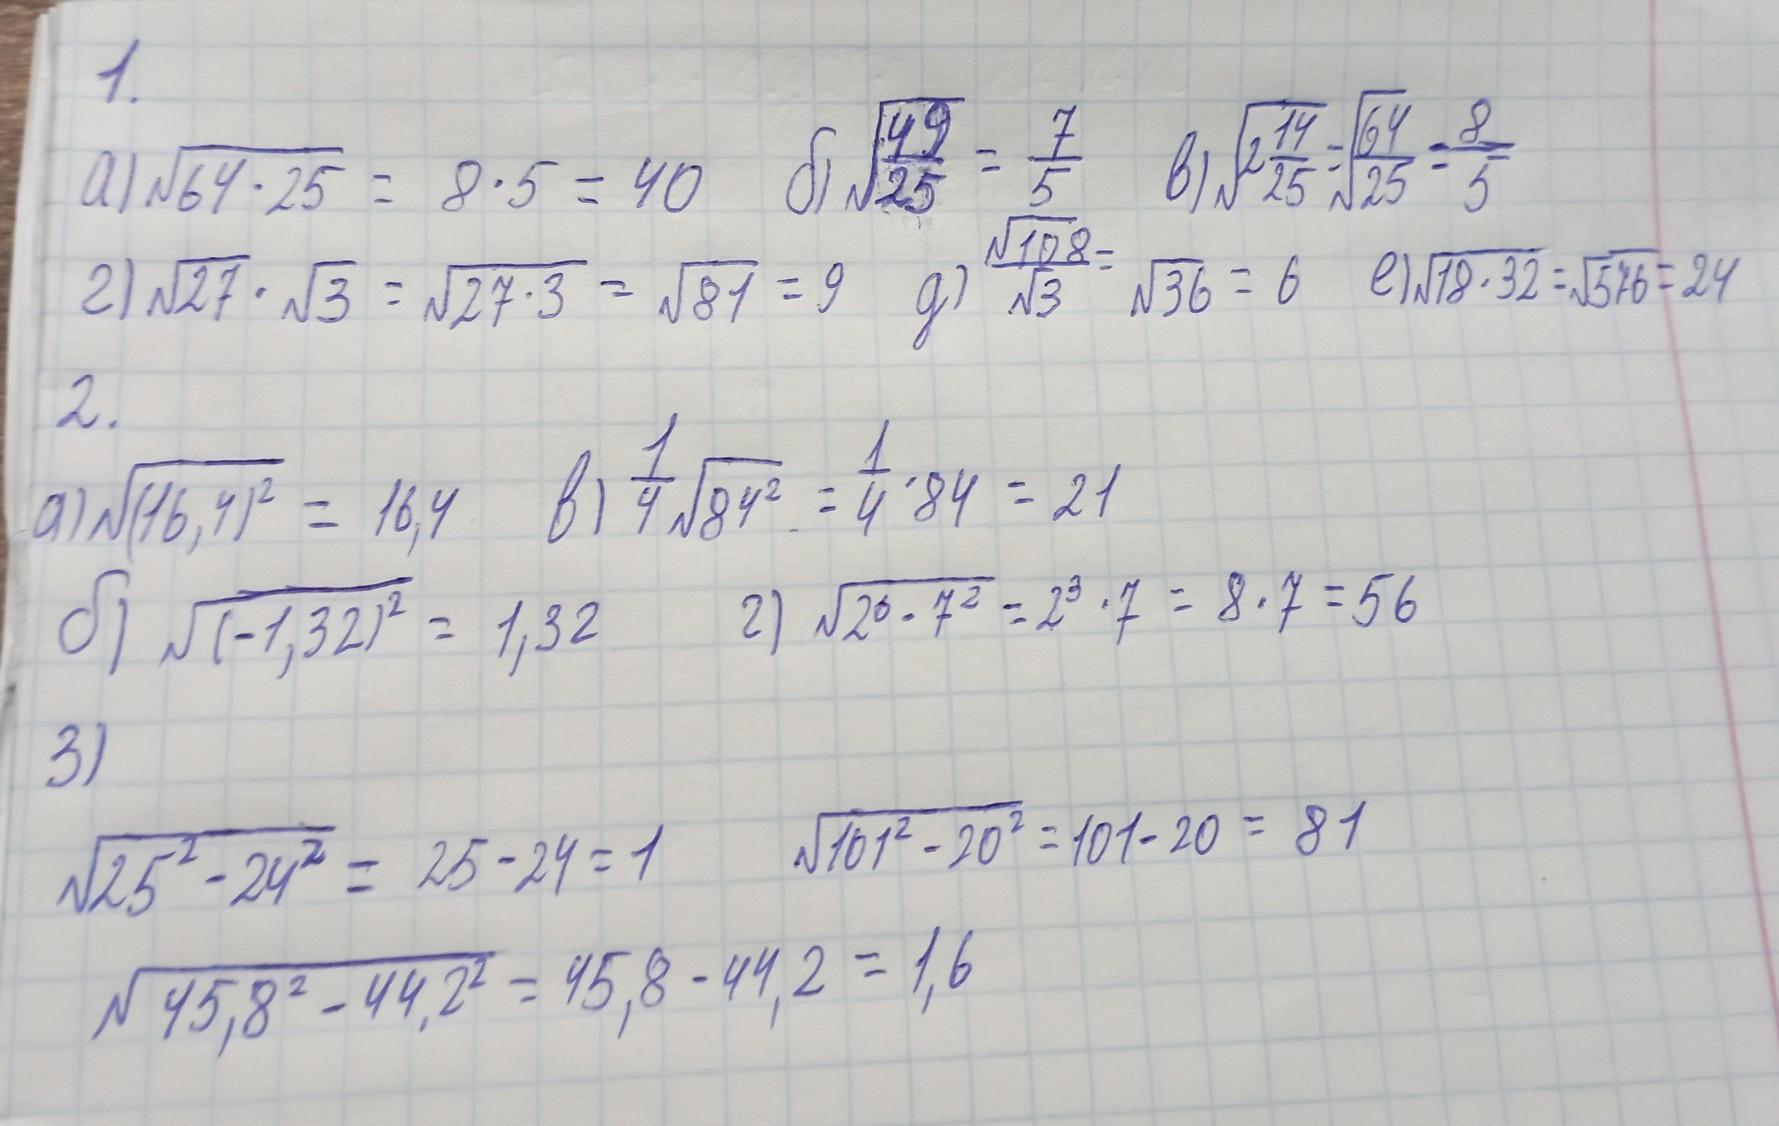 1.
а) √(64·25) = 8·5 = 40 б) √(49/25) = 7/5 в) √(2 14/25) = √(64/25) = 8/5
г) √27 · √3 = √(27·3) = √81 = 9 д) √108/√3 = √36 = 6 е) √(18·32) = √576 = 24
2.
а) √(16,4)² = 16,4 в) 1/4 √84² = 1/4 · 84 = 21
б) √(-1,32)² = 1,32 г) √(2⁶·7²) = 2³·7 = 8·7 = 56
3)
√(25² - 24²) = 25 - 24 = 1 √(101² - 20²) = 101 - 20 = 81
√(45,8² - 44,2²) = 45,8 - 44,2 = 1,6